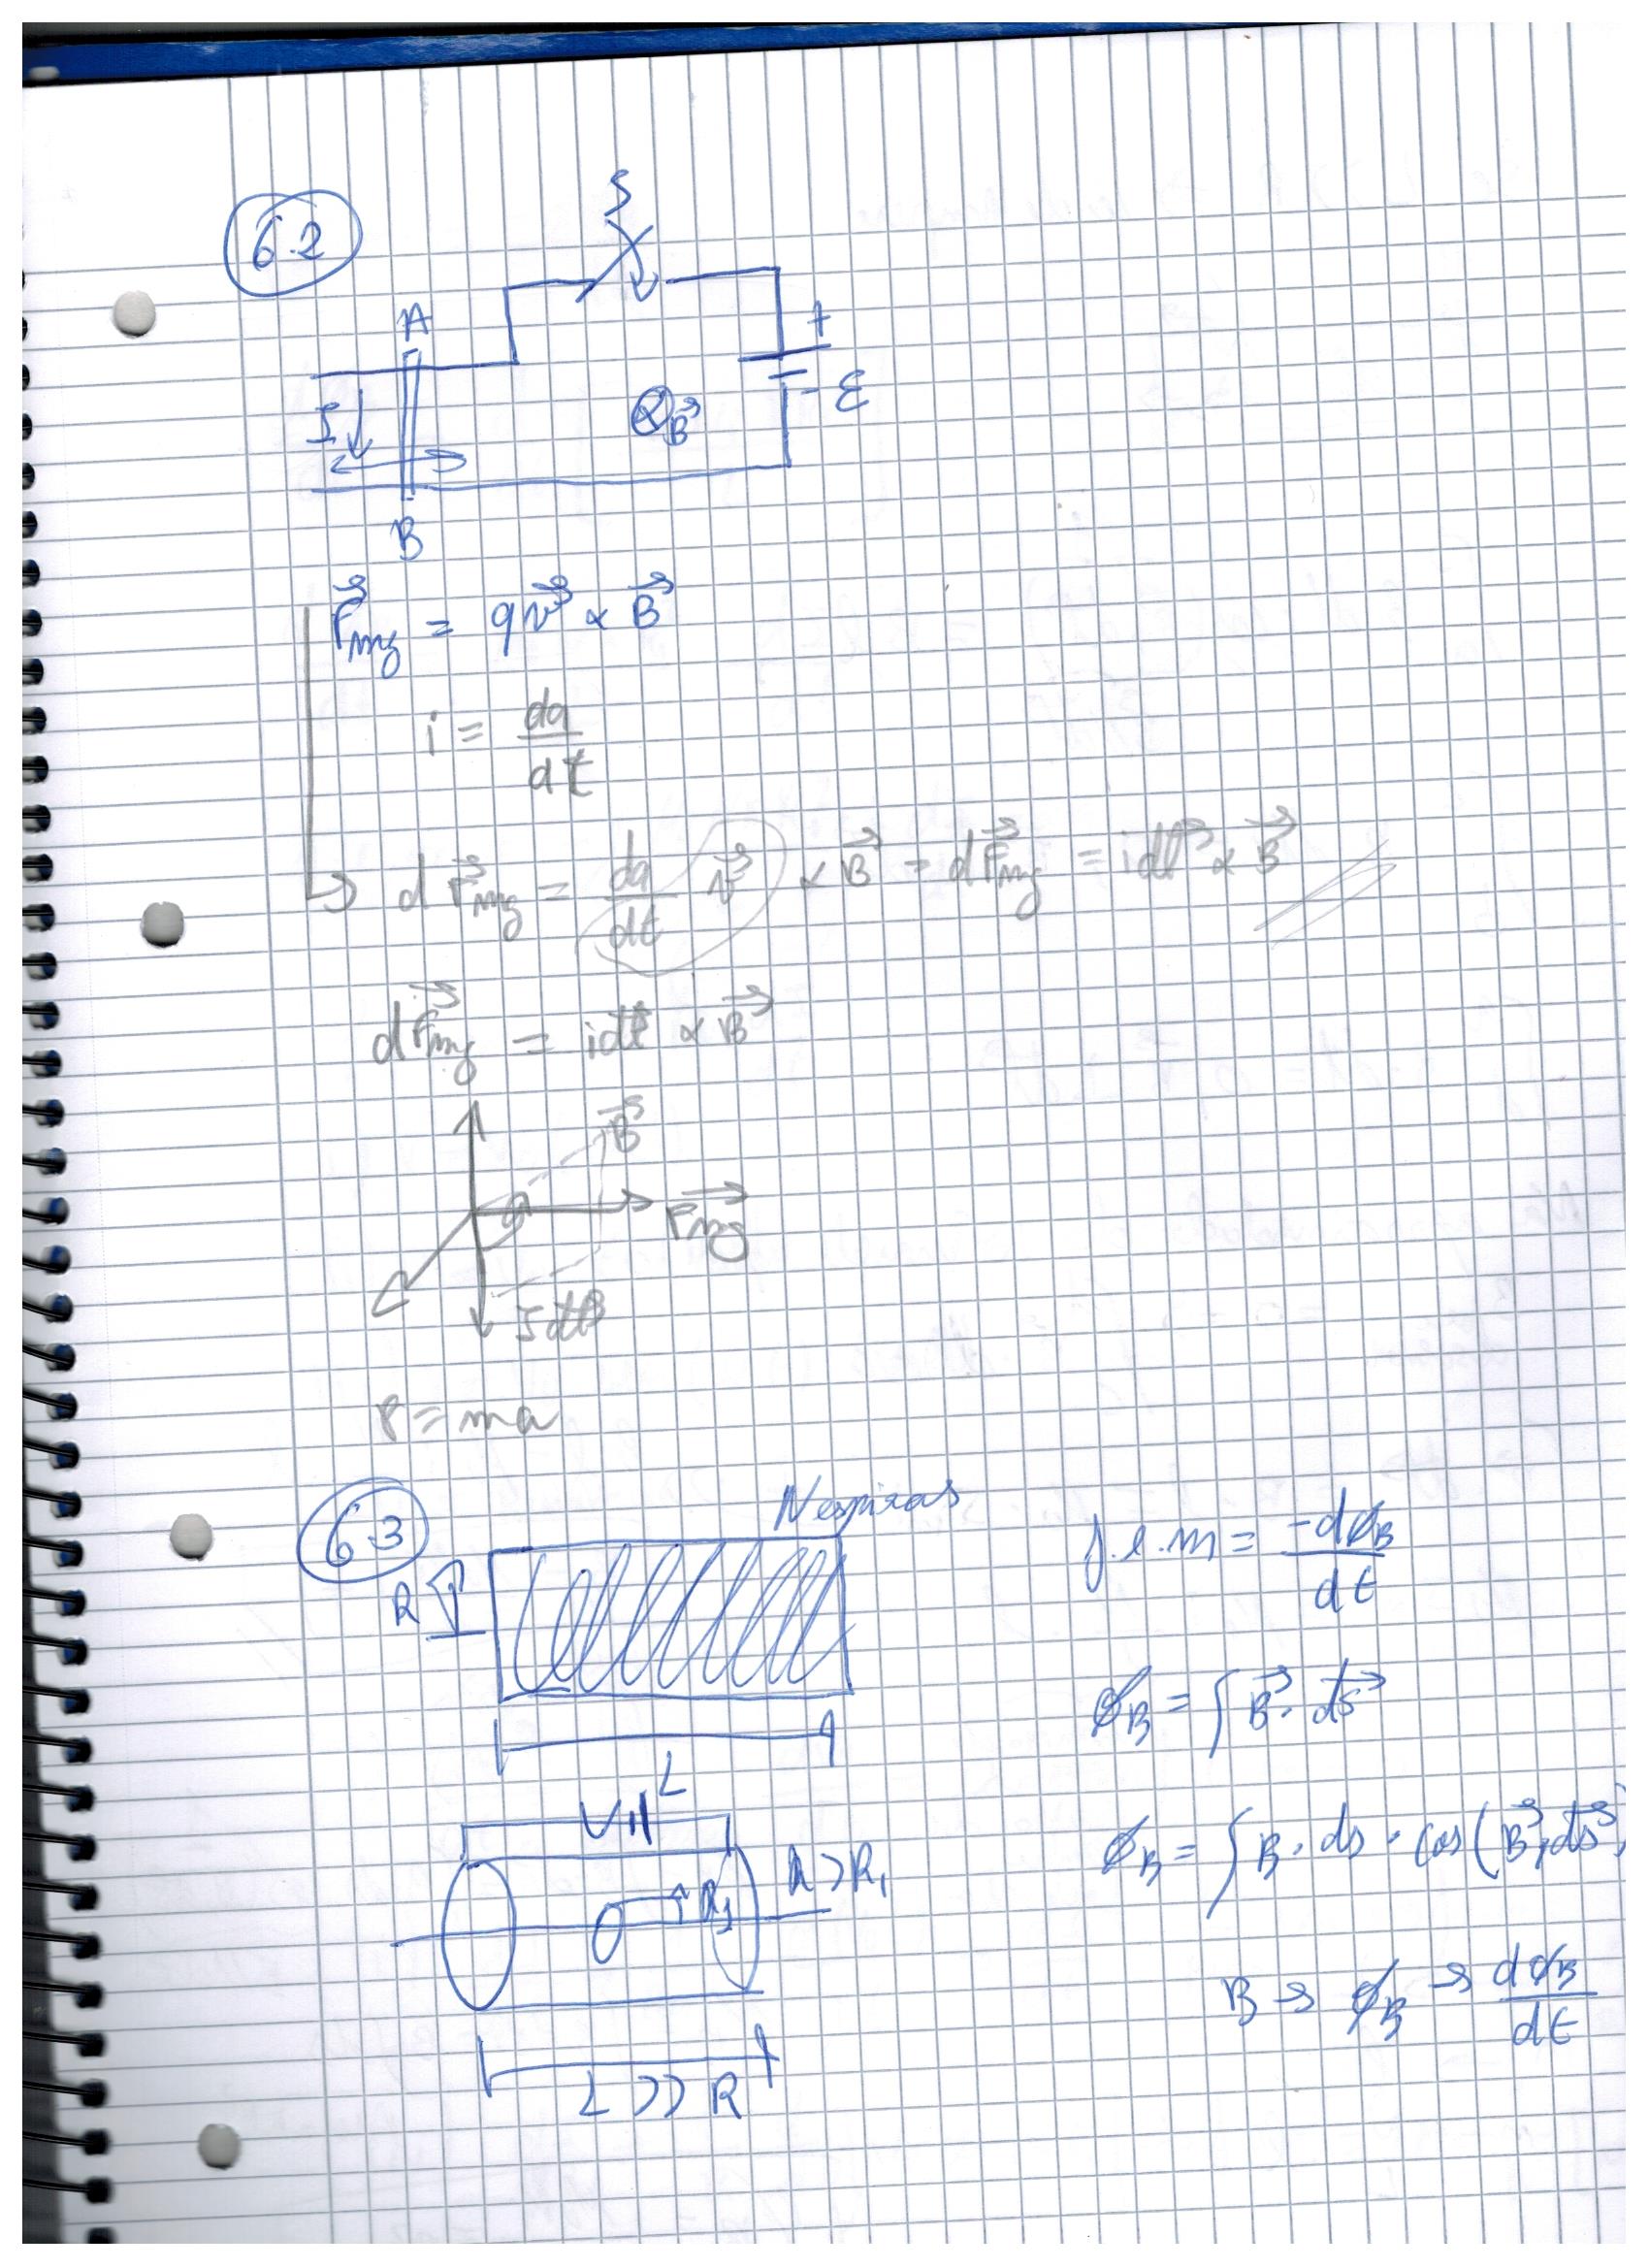 6.2
S
A
+
I
⊗ B⃗
- ε
B
F⃗mg = q v⃗ × B⃗
i = dq/dt
d F⃗mg = dq/dt v⃗ × B⃗ = d F⃗mg = i dl⃗ × B⃗
d F⃗mg = i dl⃗ × B⃗
B⃗
F⃗mg
I dl⃗
F = ma
6.3
N espiras
f.e.m = -dϕB/dt
R
ϕB = ∫ B⃗ · ds⃗
L
ϕB = ∫ B · ds · cos(B⃗, ds⃗)
R1
R > R1
B → ϕB → dϕB/dt
L >> R